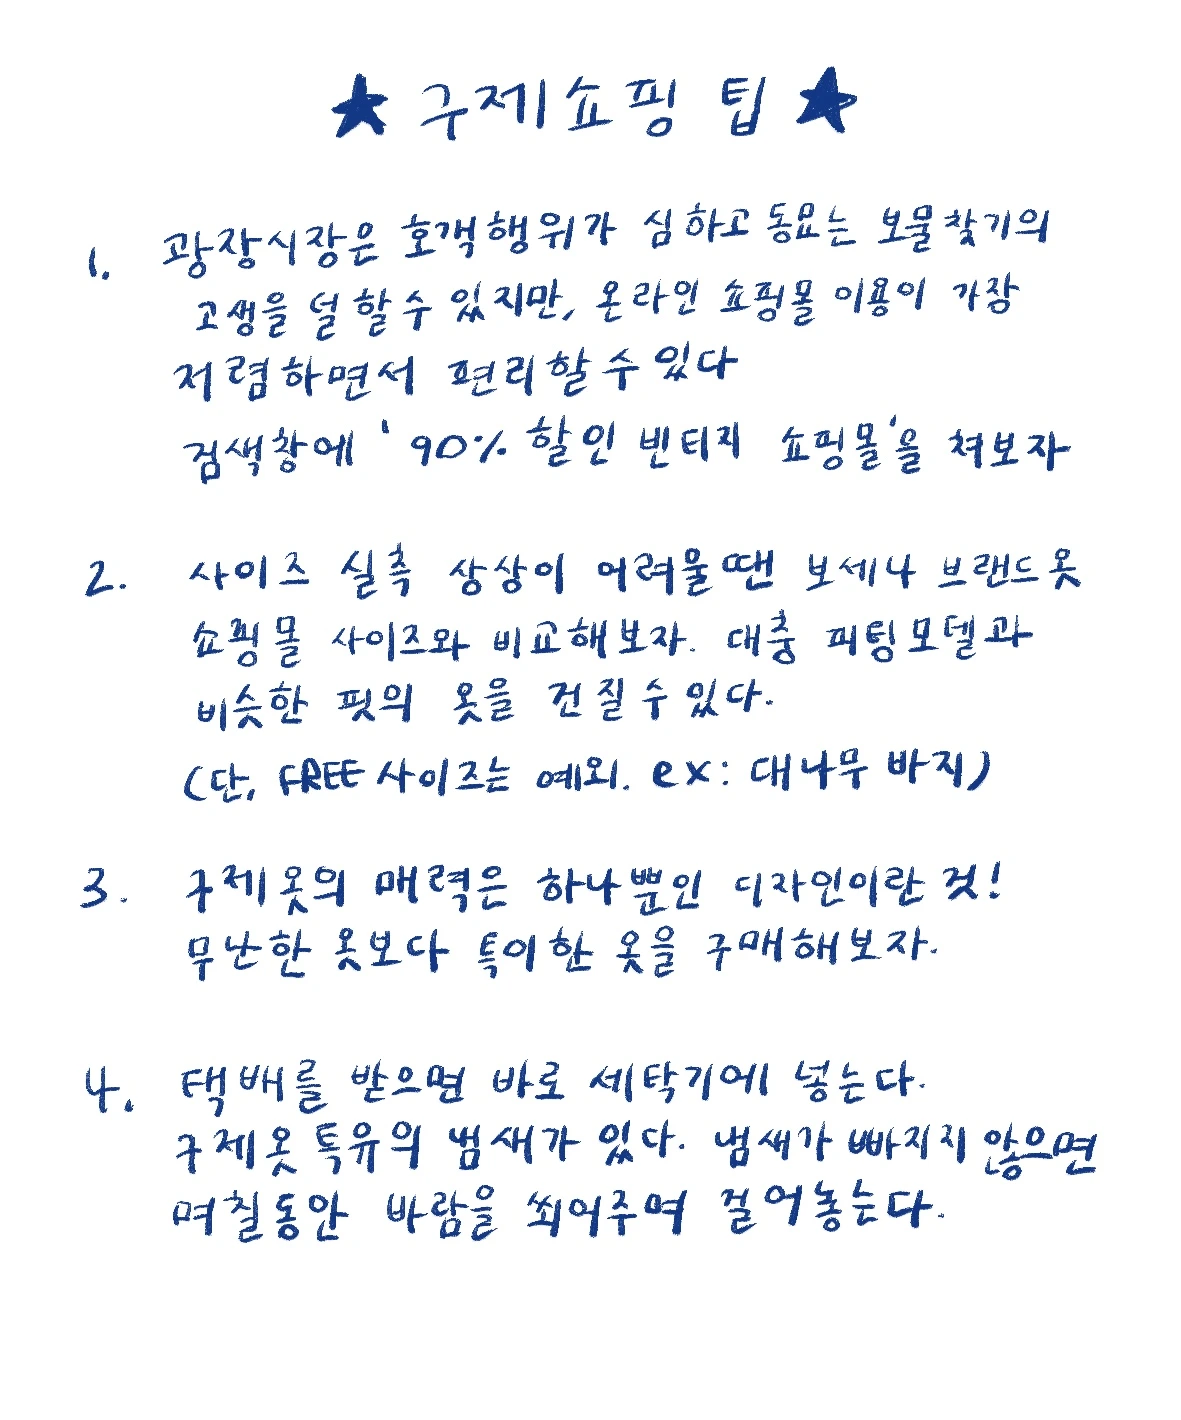 ★ 구제쇼핑 팁 ★
1. 광장시장은 호객행위가 심하고 동묘는 보물찾기의
고생을 덜 할 수 있지만, 온라인 쇼핑몰 이용이 가장
저렴하면서 편리할 수 있다
검색창에 '90% 할인 빈티지 쇼핑몰'을 쳐보자
2. 사이즈 실측 상상이 어려울땐 보세나 브랜드 옷
쇼핑몰 사이즈와 비교해보자. 대충 피팅모델과
비슷한 핏의 옷을 건질 수 있다.
(단, FREE 사이즈는 예외. ex: 대나무 바지)
3. 구제옷의 매력은 하나뿐인 디자인이란 것!
무난한 옷보다 특이한 옷을 구매해보자.
4. 택배를 받으면 바로 세탁기에 넣는다.
구제옷 특유의 냄새가 있다. 냄새가 빠지지 않으면
며칠동안 바람을 쐬어주며 걸어놓는다.